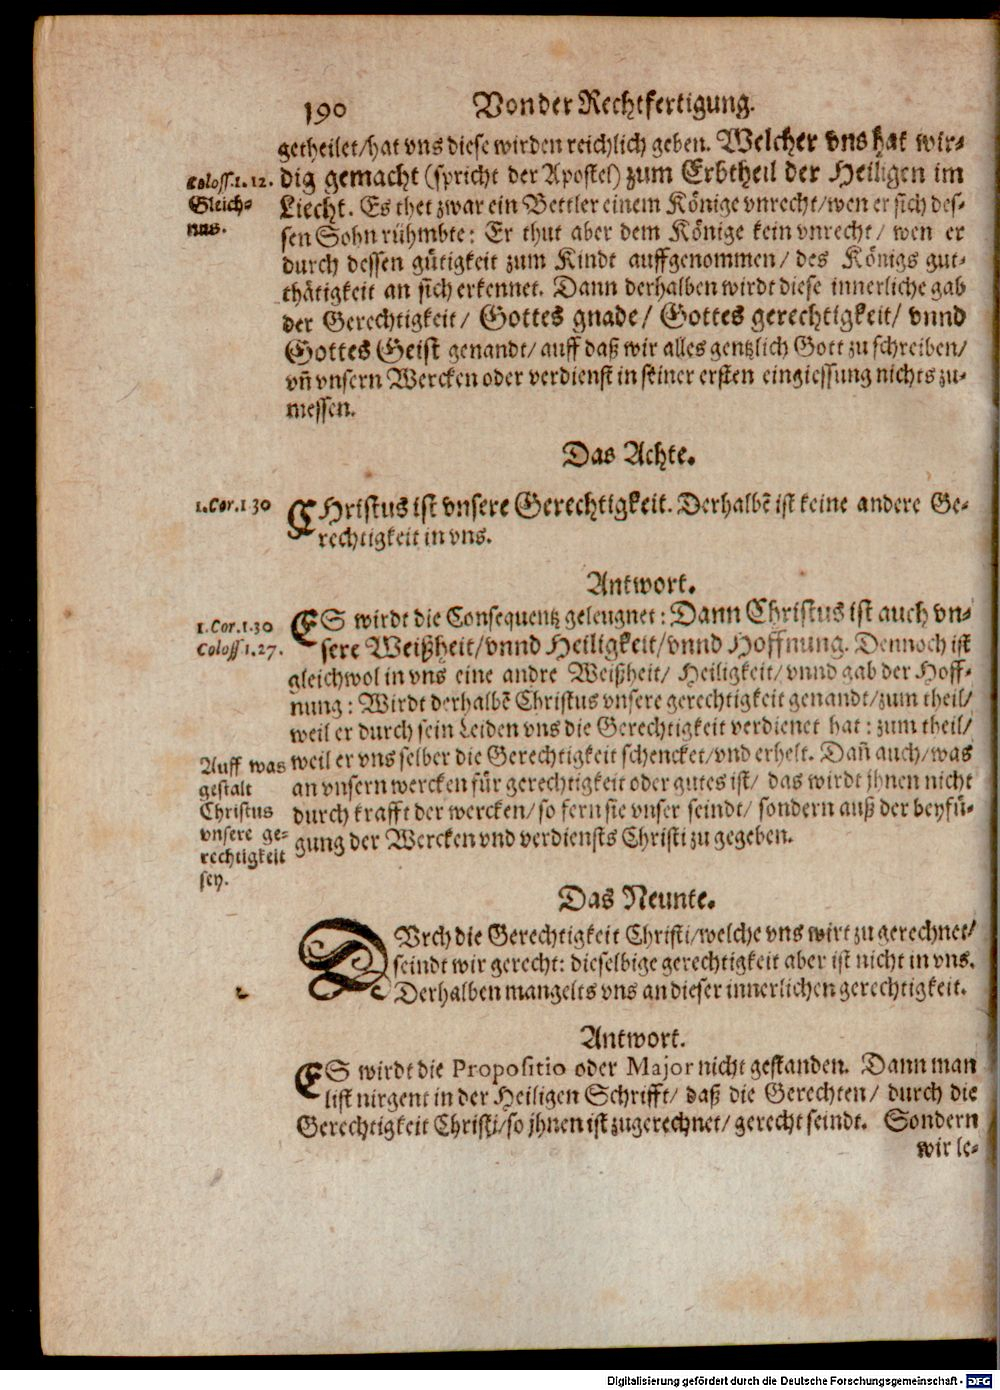 190
Von der Rechtfertigung.
getheilet/hat vns diese wirden reichlich geben. Welcher vns hat wir-
dig gemacht (spricht der Apostel) zum Erbtheil der Heiligen im
Liecht. Es thet zwar ein Bettler einem Könige vnrecht/wen er sich des-
sen Sohn rühmbte: Er thut aber dem Könige kein vnrecht/ wen er
durch dessen gütigkeit zum Kindt auffgenommen/ des Königs gut-
thätigkeit an sich erkennet. Dann derhalben wirdt diese innerliche gab
der Gerechtigkeit/ Gottes gnade/ Gottes gerechtigkeit/ vnnd
Gottes Geist genandt/ auff daß wir alles gentzlich Gott zu schreiben/
vn̄ vnsern Wercken oder verdienst in seiner ersten eingiessung nichts zu-
messen.
Coloss. 1. 12.
Gleich-
nus.
Das Achte.
1. Cor. 1 30
CHristus ist vnsere Gerechtigkeit. Derhalbē ist keine andere Ge-
rechtigkeit in vns.
Antwort.
1. Cor. 1.30
Coloss 1. 27.
ES wirdt die Consequentz geleugnet: Dann Christus ist auch vn-
sere Weißheit/vnnd Heiligkeit/vnnd Hoffnung. Dennoch ist
gleichwol in vns eine andre Weißheit/ Heiligkeit/ vnnd gab der Hoff-
nung: Wirdt derhalbē Christus vnsere gerechtigkeit genandt/zum theil/
weil er durch sein Leiden vns die Gerechtigkeit verdienet hat: zum theil/
weil er vns selber die Gerechtigkeit schencket/vnd erhelt. Dan̄ auch/was
an vnsern wercken für gerechtigkeit oder gutes ist/ das wirdt jhnen nicht
durch krafft der wercken/ so fern sie vnser seindt/ sondern auß der beyfü-
gung der Wercken vnd verdiensts Christi zu gegeben.
Auff was
gestalt
Christus
vnsere ge-
rechtigkeit
sey.
Das Neunte.
DVrch die Gerechtigkeit Christi/welche vns wirt zu gerechnet/
seindt wir gerecht: dieselbige gerechtigkeit aber ist nicht in vns.
Derhalben mangelts vns an dieser innerlichen gerechtigkeit.
Antwort.
ES wirdt die Propositio oder Major nicht gestanden. Dann man
list nirgent in der Heiligen Schrifft/ daß die Gerechten/ durch die
Gerechtigkeit Christi/so jhnen ist zugerechnet/ gerecht seindt. Sondern
wir le-
Digitalisierung gefördert durch die Deutsche Forschungsgemeinschaft - DFG